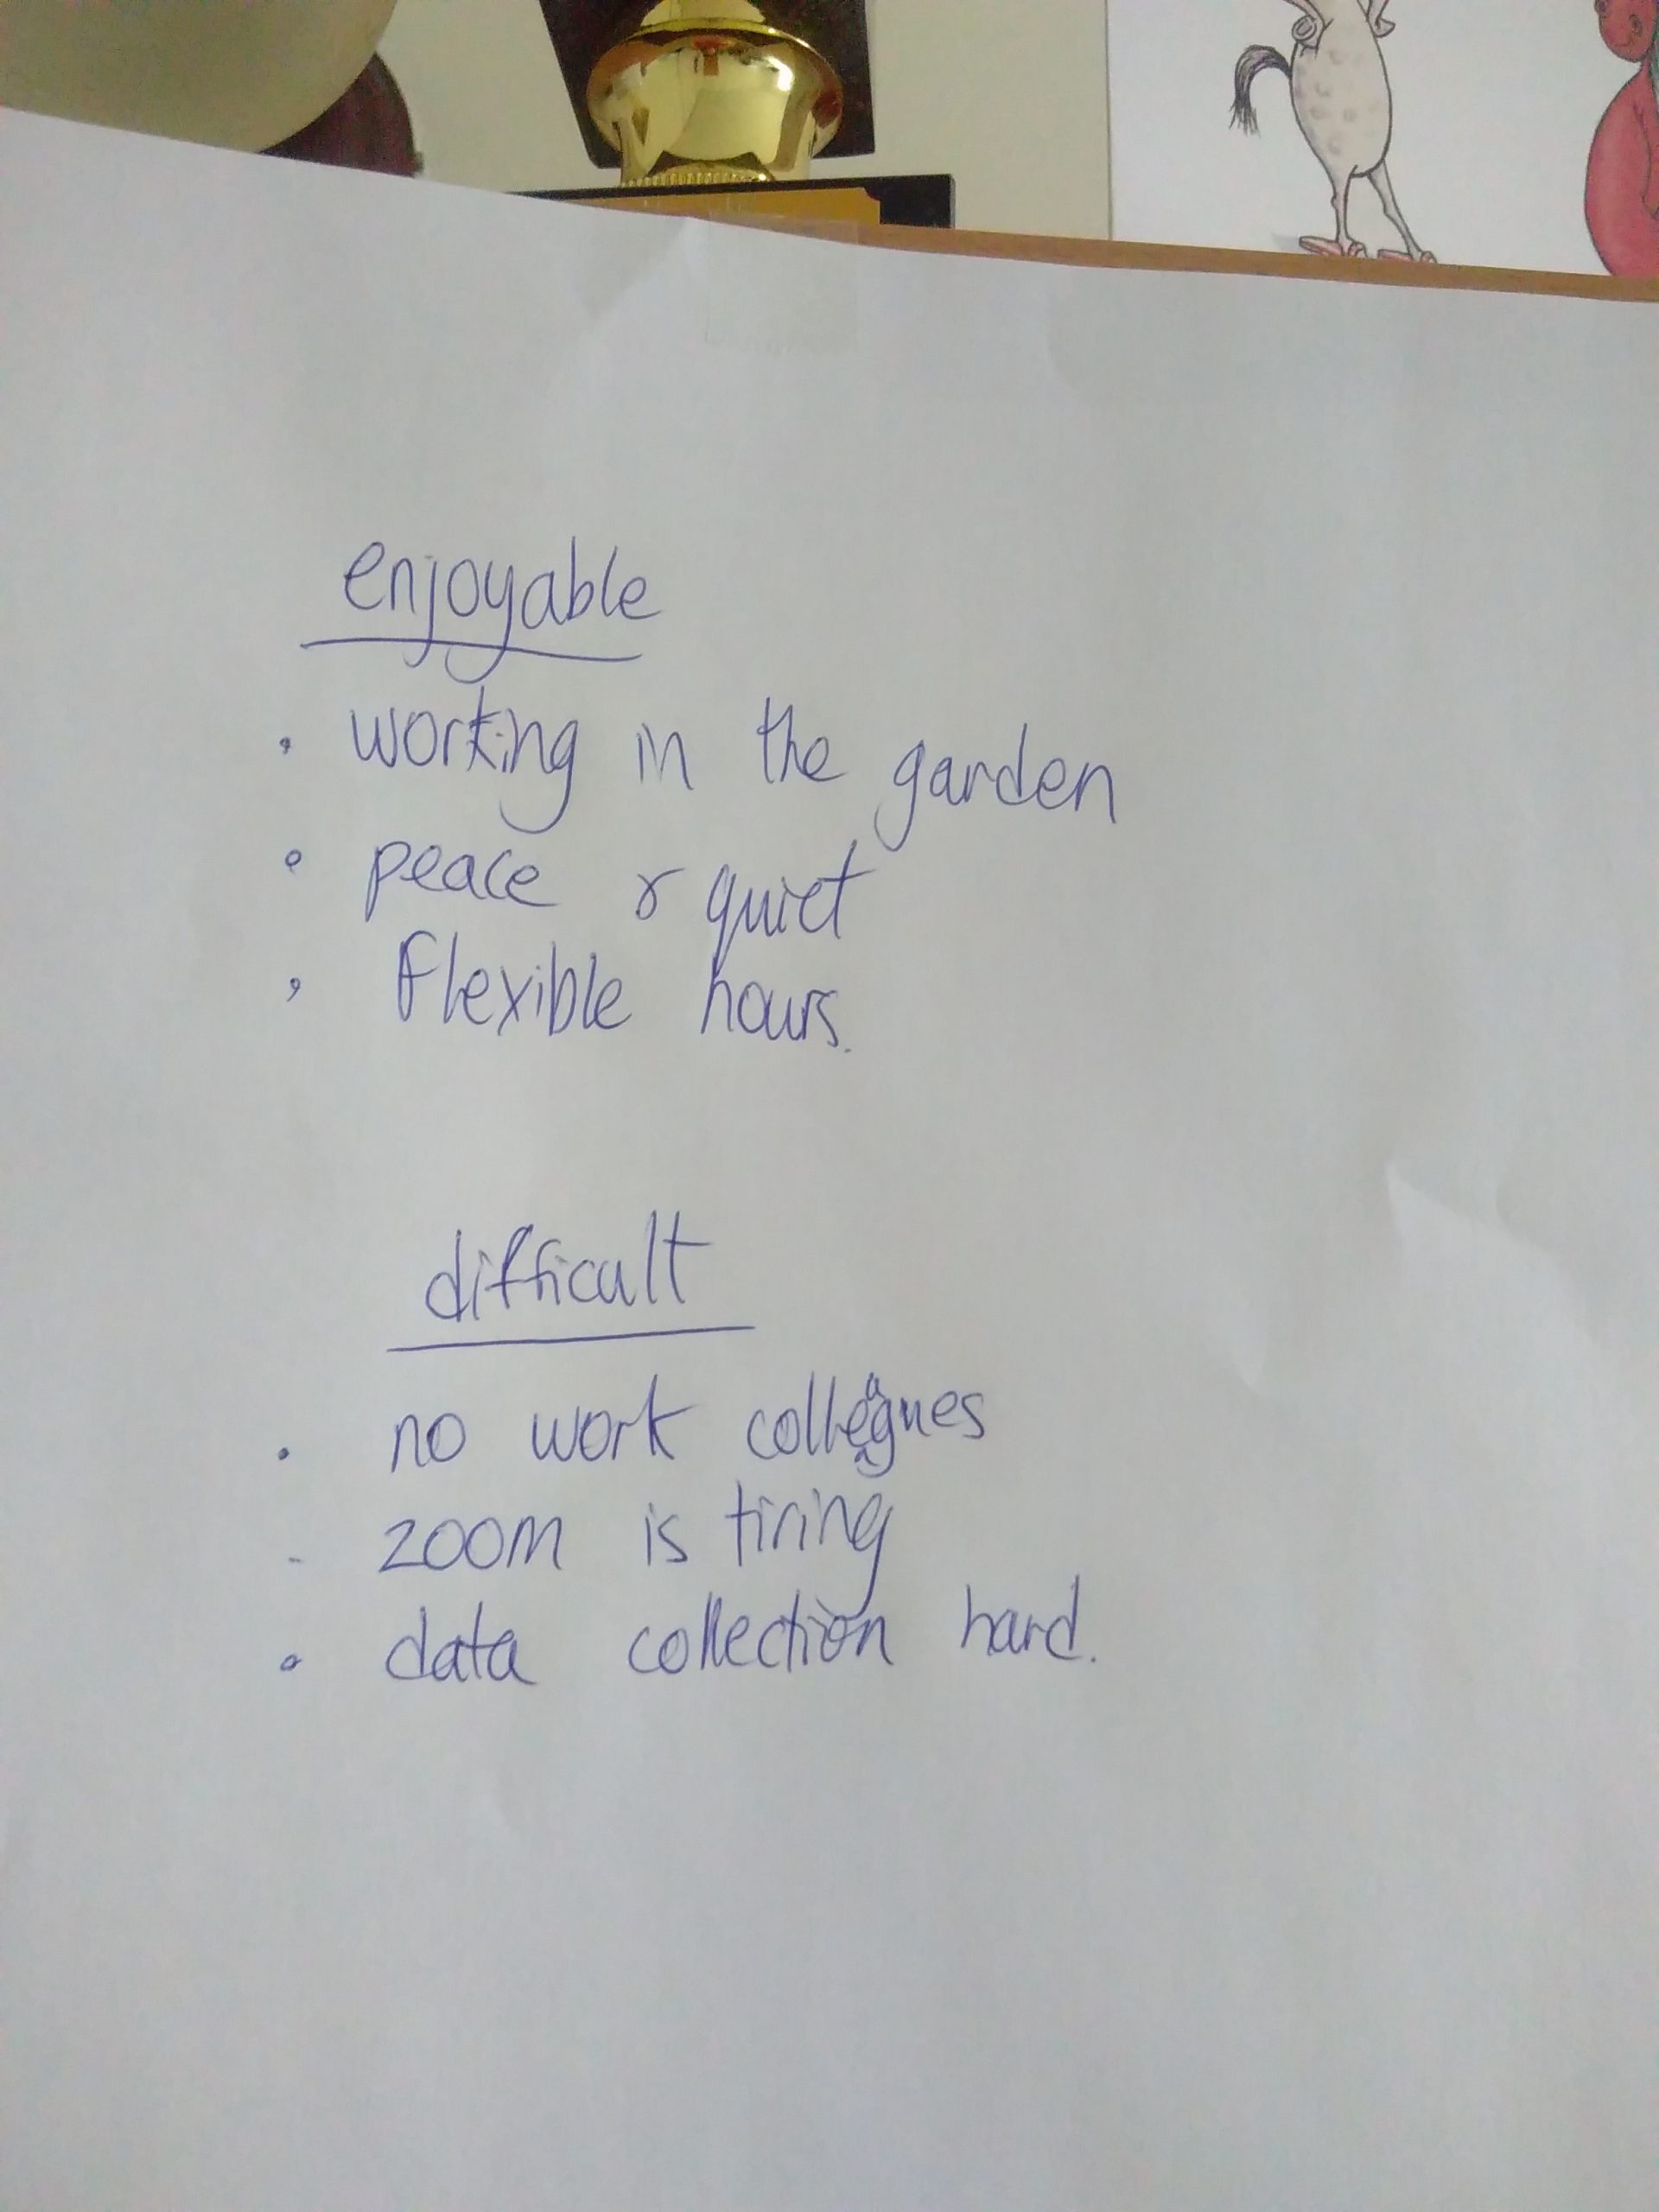 enjoyable
• working in the garden
• peace & quiet
• flexible hours.
difficult
• no work colleagues
- zoom is tiring
• data collection hard.